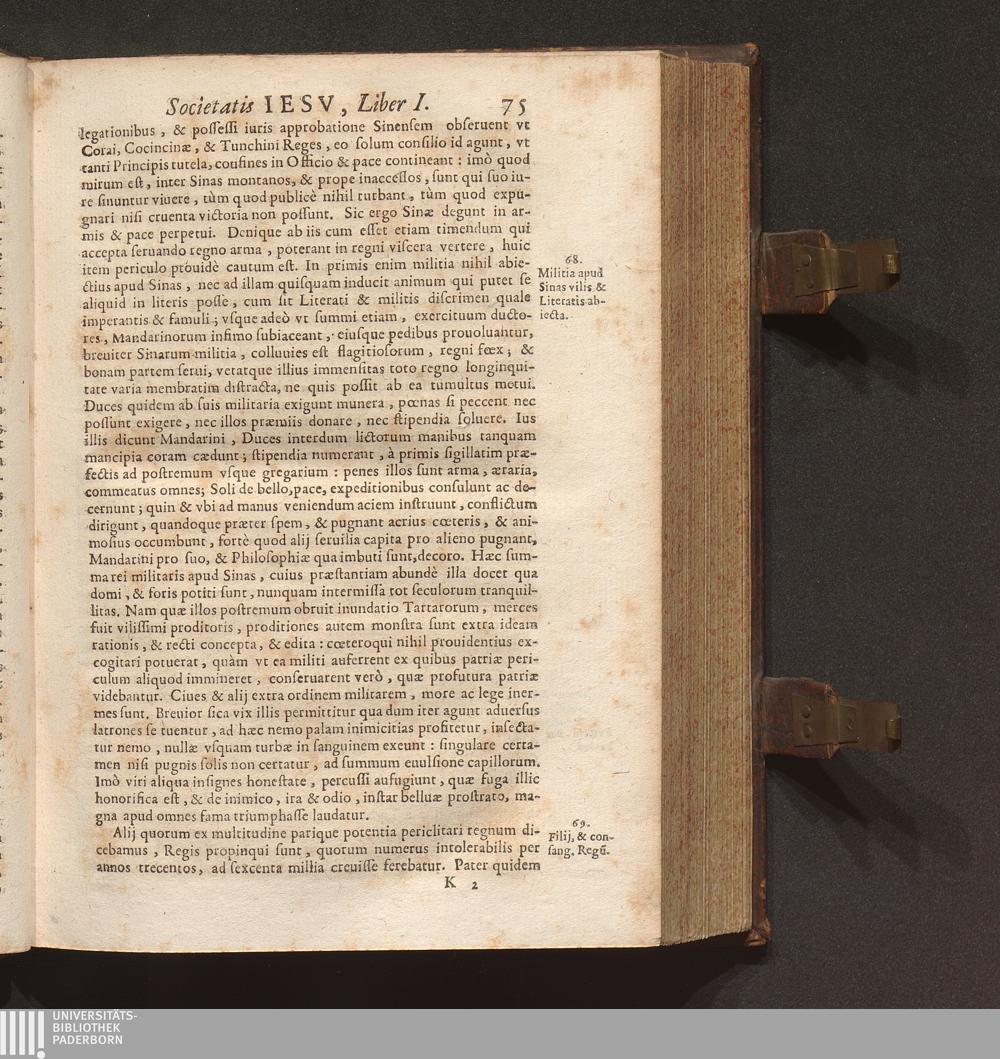 Societatis IESV, Liber I. 75
legationibus, & possessi iuris approbatione Sinensem obseruent vt
Corai, Cocincinæ, & Tunchini Reges, eo solum consilio id agunt, vt
tanti Principis tutela, confines in Officio & pace contineant : imò quod
mirum est, inter Sinas montanos, & prope inaccessos, sunt qui suo iu-
re sinuntur viuere, tùm quod publicè nihil turbant, tùm quod expu-
gnari nisi cruenta victoria non possunt. Sic ergo Sinæ degunt in ar-
mis & pace perpetui. Denique ab iis cum esset etiam timendum qui
accepta seruando regno arma, poterant in regni viscera vertere, huic
item periculo prouidè cautum est. In primis enim militia nihil abie-
ctius apud Sinas, nec ad illam quisquam inducit animum qui putet se
aliquid in literis posse, cum sit Literati & militis discrimen quale
imperantis & famuli ; vsque adeò vt summi etiam, exercituum ducto-
res, Mandarinorum infimo subiaceant, eiusque pedibus prouoluantur,
breuiter Sinarum militia, colluuies est flagitiosorum, regni fœx ; &
bonam partem serui, vetatque illius immensitas toto regno longinqui-
tate varia membratim distracta, ne quis possit ab ea tumultus motui.
Duces quidem ab suis militaria exigunt munera, pœnas si peccent nec
possunt exigere, nec illos præmiis donare, nec stipendia soluere. Ius
illis dicunt Mandarini, Duces interdum lictorum manibus tanquam
mancipia coram cædunt ; stipendia numerant, à primis sigillatim præ-
fectis ad postremum vsque gregarium : penes illos sunt arma, æraria,
commeatus omnes; Soli de bello, pace, expeditionibus consulunt ac de-
cernunt ; quin & vbi ad manus veniendum aciem instruunt, conflictum
dirigunt, quandoque præter spem, & pugnant acrius cœteris, & ani-
mosius occumbunt, fortè quod alij seruilia capita pro alieno pugnant,
Mandarini pro suo, & Philosophiæ qua imbuti sunt, decoro. Hæc sum-
ma rei militaris apud Sinas, cuius præstantiam abundè illa docet qua
domi, & foris potiti sunt, nunquam intermissa tot seculorum tranquil-
litas. Nam quæ illos postremum obruit inundatio Tartarorum, merces
fuit vilissimi proditoris, proditiones autem monstra sunt extra ideam
rationis, & recti concepta, & edita : cœteroqui nihil prouidentius ex-
cogitari potuerat, quàm vt ea militi auferrent ex quibus patriæ peri-
culum aliquod immineret, conseruarent verò, quæ profutura patriæ
videbantur. Ciues & alij extra ordinem militarem, more ac lege iner-
mes sunt. Breuior sica vix illis permittitur qua dum iter agunt aduersus
latrones se tuentur, ad hæc nemo palam inimicitias profitetur, insecta-
tur nemo, nullæ vsquam turbæ in sanguinem exeunt : singulare certa-
men nisi pugnis solis non certatur, ad summum euulsione capillorum.
Imò viri aliqua insignes honestate, percussi aufugiunt, quæ fuga illic
honorifica est, & de inimico, ira & odio, instar belluæ prostrato, ma-
gna apud omnes fama triumphasse laudatur.
Alij quorum ex multitudine parique potentia periclitari regnum di-
cebamus, Regis propinqui sunt, quorum numerus intolerabilis per
annos trecentos, ad sexcenta millia creuisse ferebatur. Pater quidem
K 2
68.
Militia apud
Sinas vilis &
Literatis ab-
iecta.
69.
Filij, & con-
sang. Regū.
UNIVERSITÄTS-
BIBLIOTHEK
PADERBORN